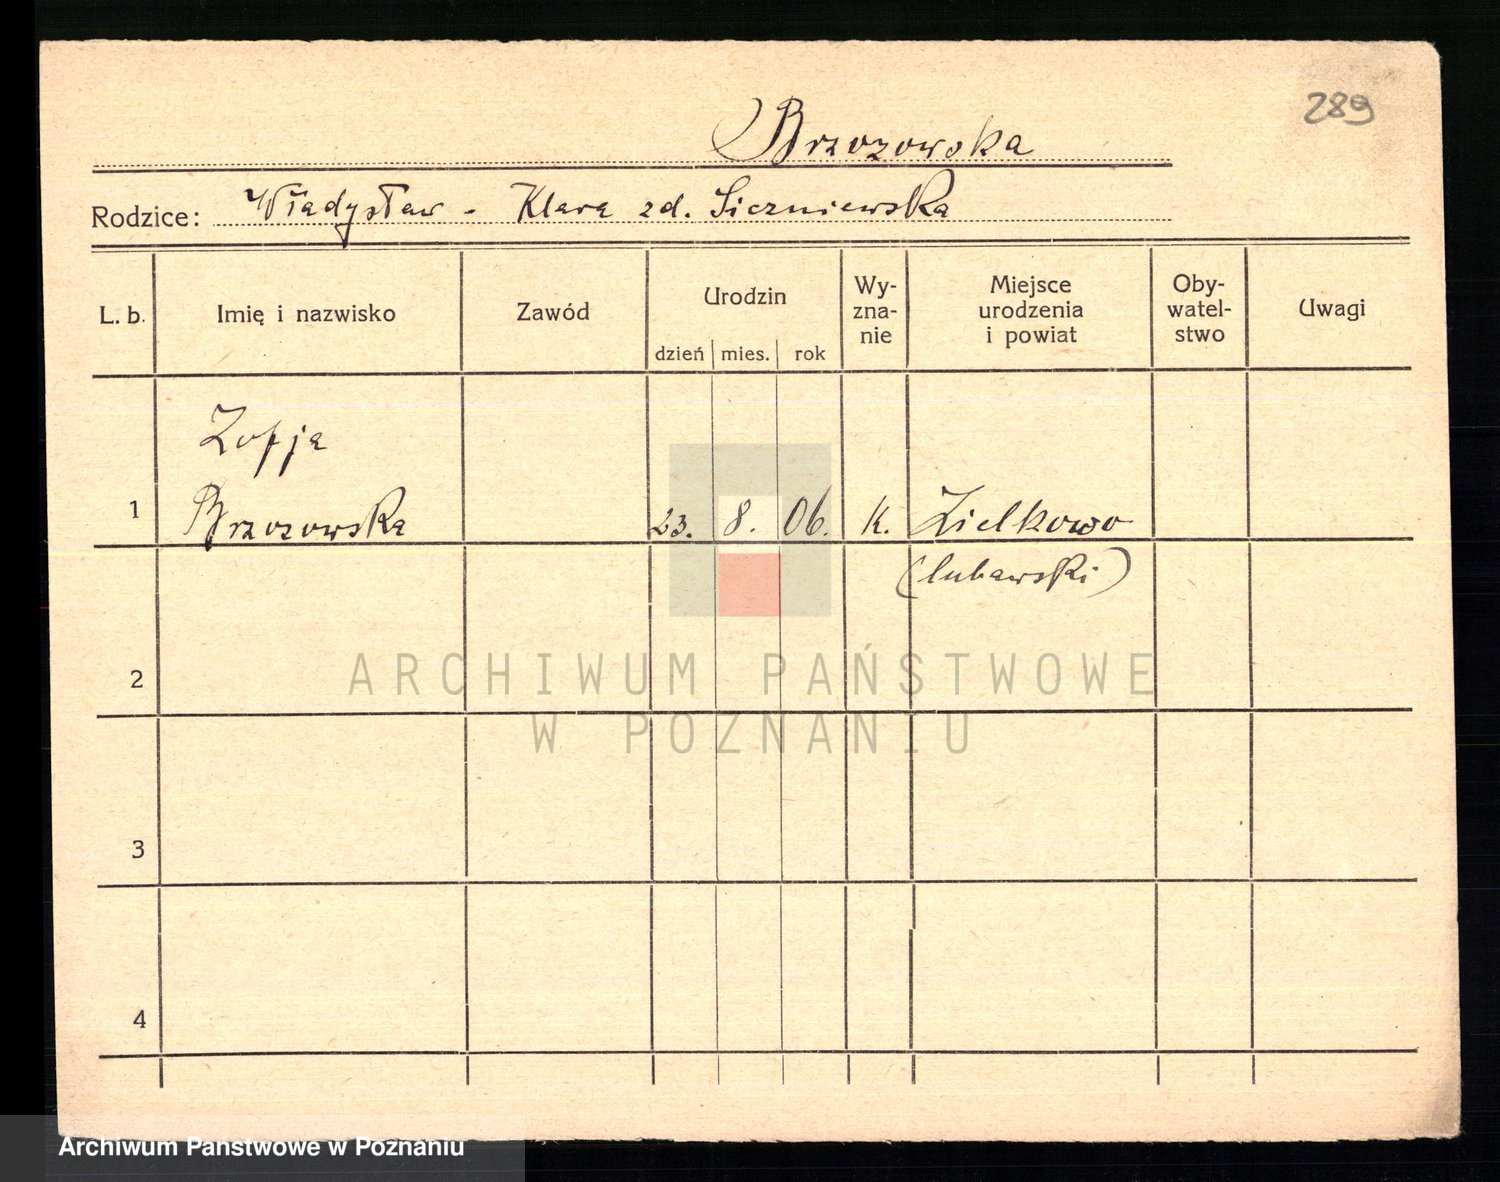 289
Brzozowska
Rodzice: Władysław - Klara zd. Siczniewska
L. b.
Imię i nazwisko
Zawód
Urodzin
dzień
mies.
rok
Wy-
zna-
nie
Miejsce
urodzenia
i powiat
Oby-
watel-
stwo
Uwagi
Zofja
1 Brzozowska 23. 8. 06. K. Zielkowo
(lubawski)
2
3
4
ARCHIWUM PAŃSTWOWE
W POZNANIU
Archiwum Państwowe w Poznaniu